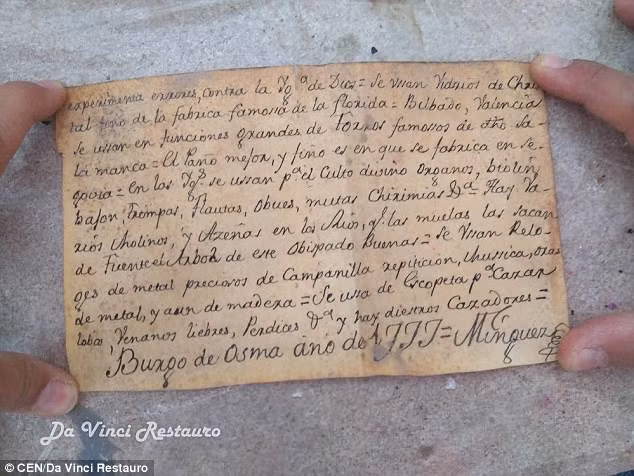 experimenta errores, contra la Ygª de Dios = Se vsan Vidrios de Chris
tal fino de la fabrica famosa de la florida = Bilbado, Valencia
se vsan en funciones grandes de Torros famossos de dho Sa-
lamanca = El Pano mejor, y fino es en que se fabrica en Se-
govia = en las Ygs. se vssan pª el Culto divino Organos, biolin
bajon, Trompas, flautas, Obues, mutas Chirimias &ª = Hay Va-
rios Molinos, y Azeñas en los Rios, y las muelas las sacan
de Fuentcel Arbol de este Obispado buenas = Se vsan Relo-
ges de metal preciosos de Campanilla repiticion, Mussica, otros
de metal, y aun de madera = Se usa de Escopeta pª Cazar
lobos, Venanos liebres, Perdices &ª y hay diestros Cazadores =
Burgo de Osma año de 1777 = Minguez
Da Vinci Restauro
© CEN/Da Vinci Restauro